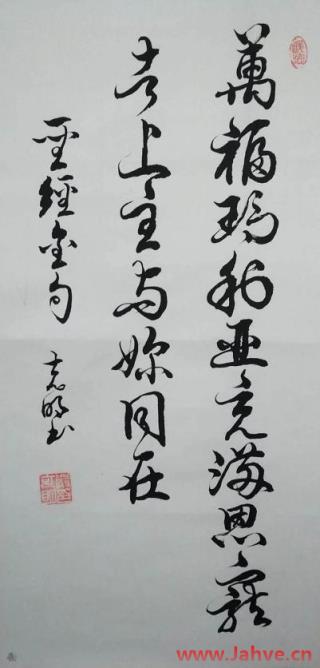 萬福瑪利亚充滿恩寵
者上主与妳同在
聖經金句 明书
www.Jahve.cn